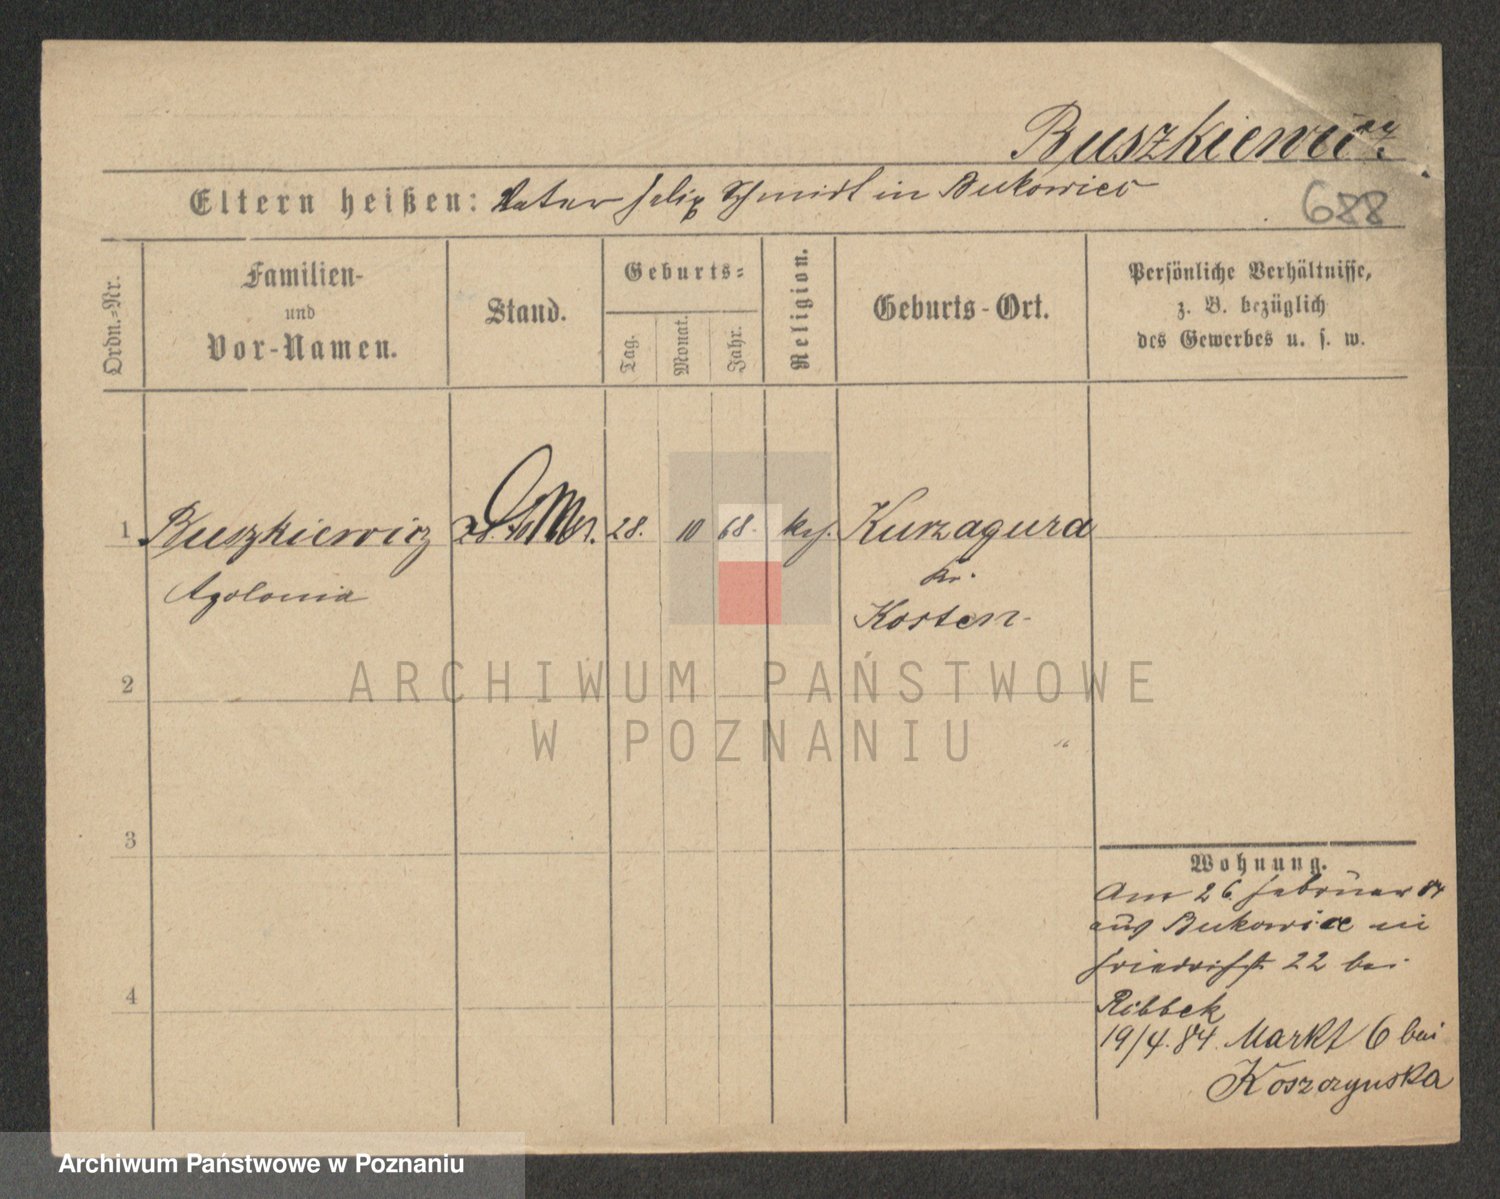 Buszkiewicz
Eltern heißen: Vater Felix Schmidt in Bukowiec
688
Ordn.-Nr.
Familien-
und
Vor-Namen.
Stand.
Geburts-
Tag.
Monat.
Jahr.
Religion.
Geburts-Ort.
Persönliche Verhältnisse,
z. B. bezüglich
des Gewerbes u. s. w.
1 Buszkiewicz 28. 10 68. Kurzagura
Apolonia
Kr.
Kosten
2
ARCHIWUM PAŃSTWOWE
W POZNANIU
3
4
Wohnung.
Am 26 Februar 84
aus Bukowiec in
Friedrichst 22 bei
Ribbek
19/4. 84. Markt 6 bei
Koszczynska
Archiwum Państwowe w Poznaniu